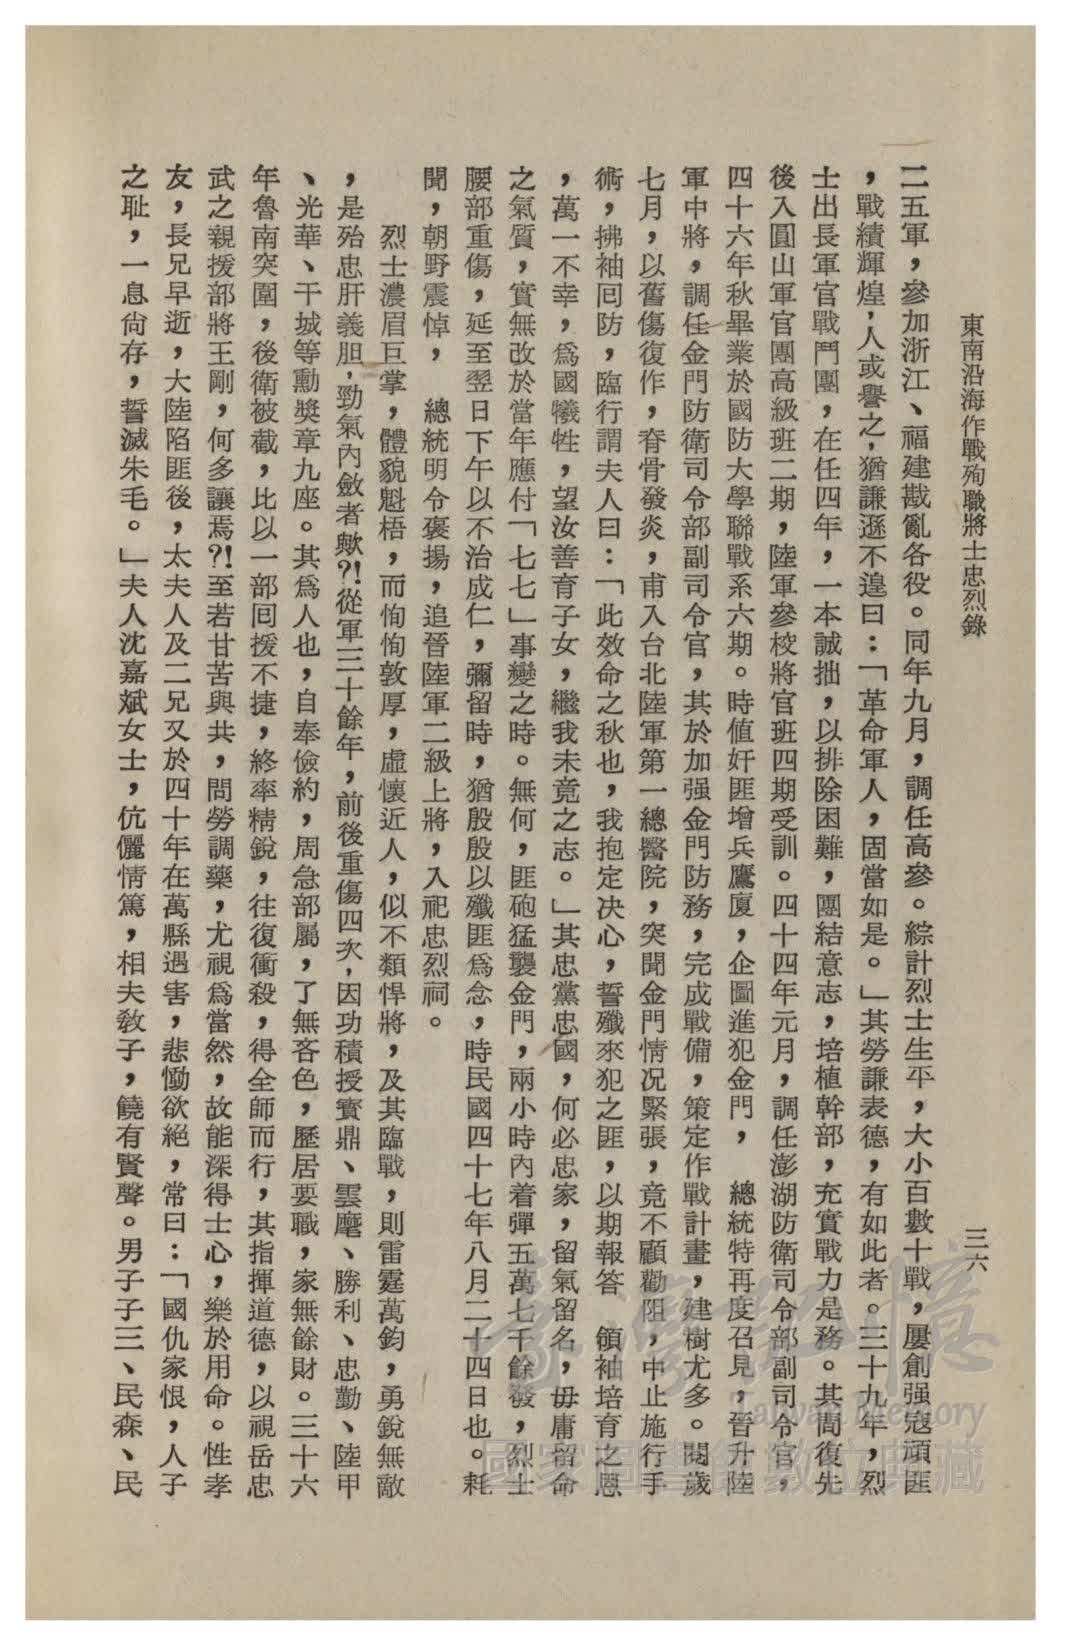 東南沿海作戰殉職將士忠烈錄
三六
二五軍，參加浙江、福建戡亂各役。同年九月，調任高參。綜計烈士生平，大小百數十戰，屢創强寇頑匪
，戰績輝煌，人或譽之，猶謙遜不遑曰：「革命軍人，固當如是。」其勞謙表德，有如此者。三十九年，烈
士出長軍官戰鬥團，在任四年，一本誠拙，以排除困難，團結意志，培植幹部，充實戰力是務。其間復先
後入圓山軍官團高級班二期，陸軍參校將官班四期受訓。四十四年元月，調任澎湖防衛司令部副司令官，
四十六年秋畢業於國防大學聯戰系六期。時值奸匪增兵鷹廈，企圖進犯金門，　總統特再度召見，晉升陸
軍中將，調任金門防衛司令部副司令官，其於加强金門防務，完成戰備，策定作戰計畫，建樹尤多。閱歲
七月，以舊傷復作，脊骨發炎，甫入台北陸軍第一總醫院，突聞金門情况緊張，竟不顧勸阻，中止施行手
術，拂袖回防，臨行謂夫人曰：「此效命之秋也，我抱定决心，誓殲來犯之匪，以期報答　領袖培育之恩
，萬一不幸，爲國犧牲，望汝善育子女，繼我未竟之志。」其忠黨忠國，何必忠家，留氣留名，毋庸留命
之氣質，實無改於當年應付「七七」事變之時。無何，匪砲猛襲金門，兩小時內着彈五萬七千餘發，烈士
腰部重傷，延至翌日下午以不治成仁，彌留時，猶殷殷以殲匪爲念，時民國四十七年八月二十四日也。耗
聞，朝野震悼，　總統明令褒揚，追晉陸軍二級上將，入祀忠烈祠。
烈士濃眉巨掌，體貌魁梧，而恂恂敦厚，虛懷近人，似不類悍將，及其臨戰，則雷霆萬鈞，勇銳無敵
，是殆忠肝義胆，勁氣內斂者歟?!從軍三十餘年，前後重傷四次，因功積授寶鼎、雲麾、勝利、忠勤、陸甲
、光華、干城等勳獎章九座。其爲人也，自奉儉約，周急部屬，了無吝色，歷居要職，家無餘財。三十六
年魯南突圍，後衛被截，比以一部回援不捷，終率精銳，往復衝殺，得全師而行，其指揮道德，以視岳忠
武之親援部將王剛，何多讓焉?!至若甘苦與共，問勞調藥，尤視爲當然，故能深得士心，樂於用命。性孝
友，長兄早逝，大陸陷匪後，太夫人及二兄又於四十年在萬縣遇害，悲慟欲絕，常曰：「國仇家恨，人子
之耻，一息尙存，誓滅朱毛。」夫人沈嘉斌女士，伉儷情篤，相夫敎子，饒有賢聲。男子子三、民森、民
臺灣記憶
Taiwan Memory
國家圖書館數位典藏